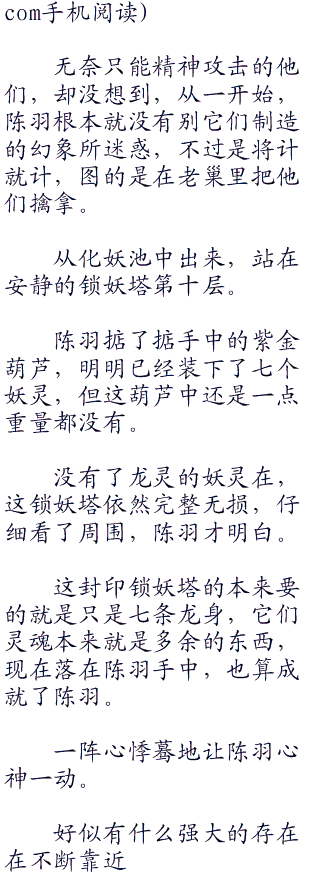 com手机阅读）
无奈只能精神攻击的他
们，却没想到，从一开始，
陈羽根本就没有别它们制造
的幻象所迷惑，不过是将计
就计，图的是在老巢里把他
们擒拿。
从化妖池中出来，站在
安静的锁妖塔第十层。
陈羽掂了掂手中的紫金
葫芦，明明已经装下了七个
妖灵，但这葫芦中还是一点
重量都没有。
没有了龙灵的妖灵在，
这锁妖塔依然完整无损，仔
细看了周围，陈羽才明白。
这封印锁妖塔的本来要
的就是只是七条龙身，它们
灵魂本来就是多余的东西，
现在落在陈羽手中，也算成
就了陈羽。
一阵心悸蓦地让陈羽心
神一动。
好似有什么强大的存在
在不断靠近